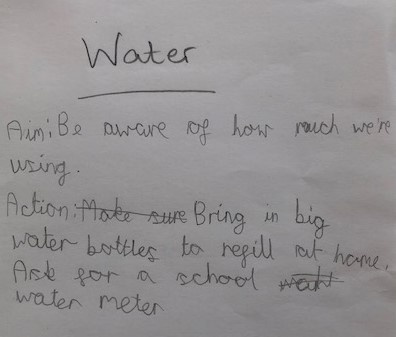 Water
Aim: Be aware of how much we're
using.
Action: Make sure Bring in big
water bottles to refill at home.
Ask for a school
water meter